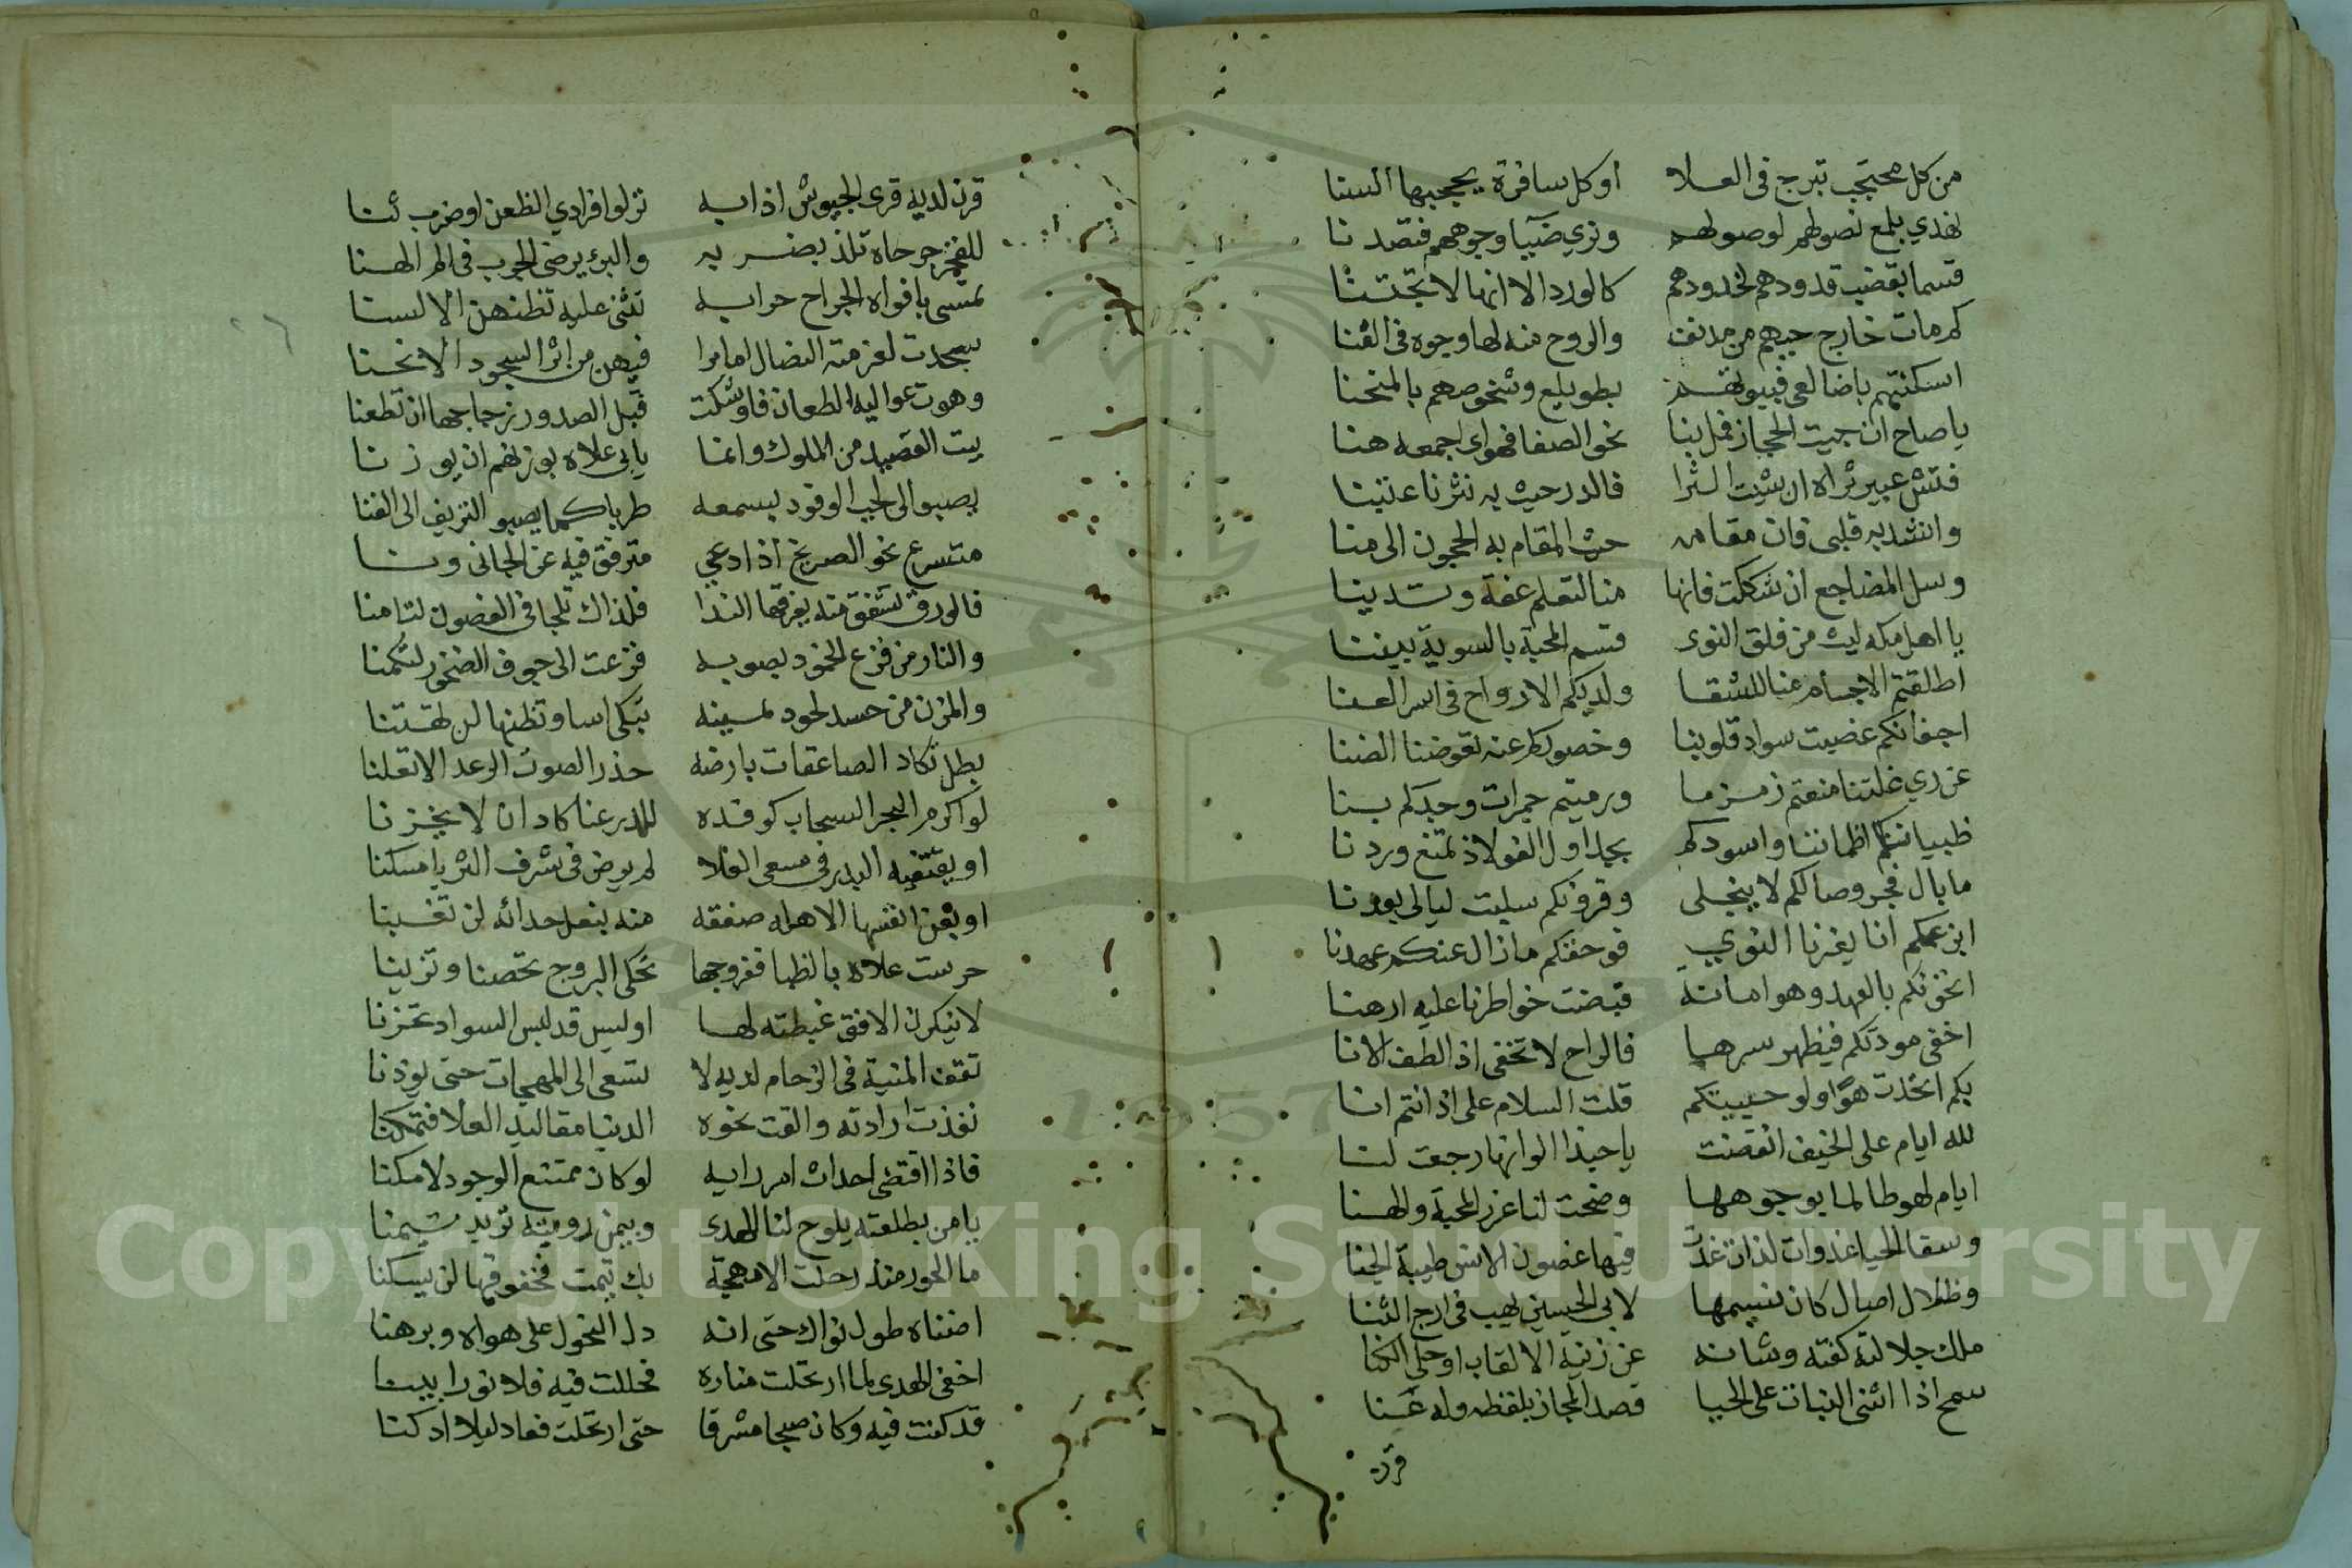 من كل محتجب تبرج في العلا   اوكل سافرة يحجبها السنا
نهذي بلمع نصولهم لوصولهم   ونري ضيا وجوههم فتصدنا
قسما بقضب قدودهم لخدودهم   كالورد الا انها لا تجتنا
كم مات خارج حيهم من مدنف   والروح منه لها وجوه في الفنا
اسكنتهم باضالعي فبيوتهم   بطويلع وشخوصهم بالمنحنا
ياصاح ان جيت الحجاز فمل بنا   نحو الصفا فهواي اجمعه هنا
فتش عبير ثراه ان شيت الثرا   فالدر حيث به نثرنا عتبنا
وانشد به قلبي فان مقامه   حيث المقام به الحجون الى منا
وسل المضاجع ان شككت فانها   منا لتعلم عفة وتدينا
يا اهل مكه ليت من فلق النوى   قسم المحبة بالسوية بيننا
اطلقتم الاجسام عنا للشقا   ولديكم الارواح في اسر العنا
اجفانكم غضبت سواد قلوبنا   وخصوركم عنه تعوضنا الضنا
عن ري غلتنا منعتم زمزما   ورميتم جمرات وجدكم بنا
ظبياتكم اظماننا واسودكم   بجداول الفولاذ تمنع وردنا
ما بال فجر وصالكم لا ينجلي   وقرونكم سلبت ليالي بعدنا
ابزعمكم انا يغيرنا النوي   فوحقكم مازال عنكم عهدنا
انخونكم بالعهد وهو امانة   قبضت خواطرنا عليه ارهنا
اخفي مودتكم فيظهر سرها   فالراح لا تخفى اذا لطف الانا
بكم اتحدت هوًا ولو حييتكم   قلت السلام على اذ انتم انا
لله ايام على الخيف انقضت   ياحبذا لو انها رجعت لنا
ايام لهو طالما بوجوهها   وضحت لنا غرر المحبة والهنا
وسقا الحيا غدوات لذات غدت   فيها غصون الانس طيبة الجنا
وظلال اصال كان نسيمها   لابي الحسين يهب في ارج الثنا
ملك جلالته كفته وشانه   عن زنية الالقاب او حلي الكنا
سمح اذا اثنى النبات على الحيا   قصد المجاز بلفظه وله عنا
قرن
قرن لديه قرى الجيوش اذا به   نزلوا فرادي الظعن او ضرب ثنا
للفخر جرحاه تلذ بضربه   والبرؤ يرضى الجرب في الم الهنا
تمسى بافواه الجراح حرابه   تثنى عليه تظنهن الالسنا
سجدت لعزمته النضال اما ترا   فيهن من اثر السجود الانحنا
وهوت عواليه الطعان فاوشكت   قبل الصدور زجاجها ان تطعنا
بيت القصيد من الملوك وانما   يابي علاه بوزنهم ان يوزنا
يصبوا الى لجب الوفود بسمعه   طربا كما يصبو النزيف الى الغنا
متسرع نحو الصريخ اذا دعي   مترفق فيه عن الجاني ونا
فالورق تشفق منه يغرقها الندا   فلذاك تلجا في الغصون لتامنا
والنار من فزع الخمود بصوبه   فزعت الى جوف الصخور لتكمنا
والمزن من حسد لجود يمينه   تبكي اسا وتظنها لن تهتنا
بطل تكاد الصاعقات بارضه   حذر الصوت الرعد الا تعلنا
لو اكرم البحر السحاب كوفده   للدر عنا كاد ان لا يخزنا
او يقتفيه البدر في مسعى العلا   لم يرض في شرف الثريا مسكنا
او يبعن انفسها الاهله صفقه   منه بنعل حدائه لن تغبنا
حرست علاه بالظبا ففروجها   تحكي البروج تحصنا وتزينا
لا ينكرن الافق غبطته لها   او ليس قد لبس السواد تحزنا
تقف المنية في الزحام لديه لا   تسعى الى المهجات حتى يؤذنا
نفذت ارادته والقت نحوه   الدنيا مقاليد العلا فتمكنا
فاذا اقتضى احداث امر رايه   لو كان ممتنع الوجود لامكنا
يا من بطلعته يلوح لنا الهدى   وبيمن رويته نريد تيمنا
ما الجور منذ رحلت الا مهجة   بك تيمت فخفوقها لن يسكنا
اضناه طول نواك حتى انه   دل النحول على هواه وبرهنا
اخفى الهدى لما ارتحلت مناره   فحللت فيه فلاح نورا بينا
قد كنت فيه وكان صبحا مشرقا   حتى ارتحلت فعاد ليلا ادكنا
Copyright © King Saud University
1957